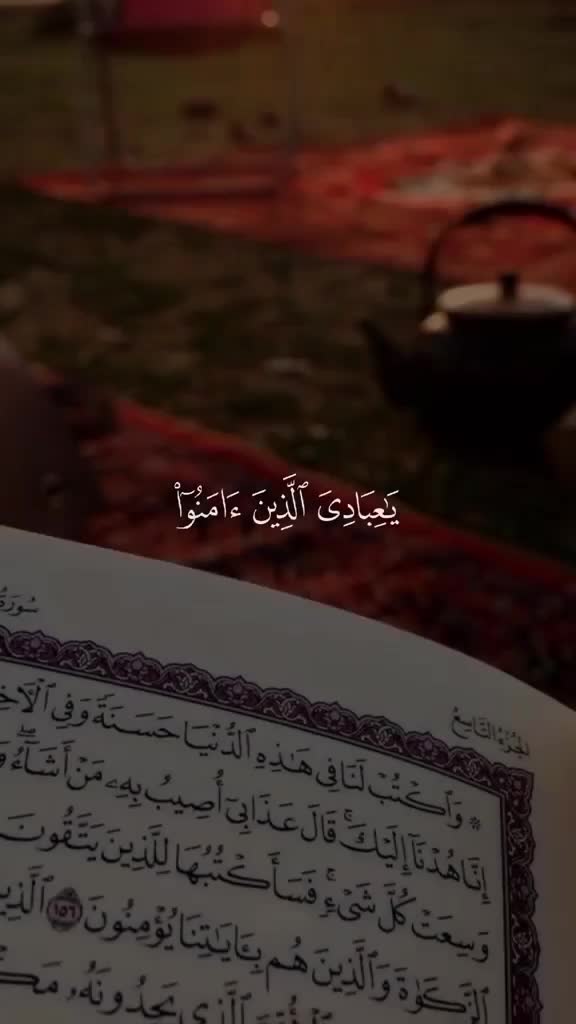 يَٰعِبَادِىَ ٱلَّذِينَ ءَامَنُوٓا۟
سُورَةُ
الجُزْءُ التَّاسِعُ
۞ وَٱكْتُبْ لَنَا فِى هَٰذِهِ ٱلدُّنْيَا حَسَنَةً وَفِى ٱلْأَخِ
إِنَّا هُدْنَآ إِلَيْكَ ۚ قَالَ عَذَابِىٓ أُصِيبُ بِهِۦ مَنْ أَشَآءُ ۖ وَ
وَسِعَتْ كُلَّ شَىْءٍ ۚ فَسَأَكْتُبُهَا لِلَّذِينَ يَتَّقُونَ
ٱلزَّكَوٰةَ وَٱلَّذِينَ هُم بِـَٔايَٰتِنَا يُؤْمِنُونَ ١٥٦ ٱلَّذِين
ٱلَّذِى يَجِدُونَهُۥ